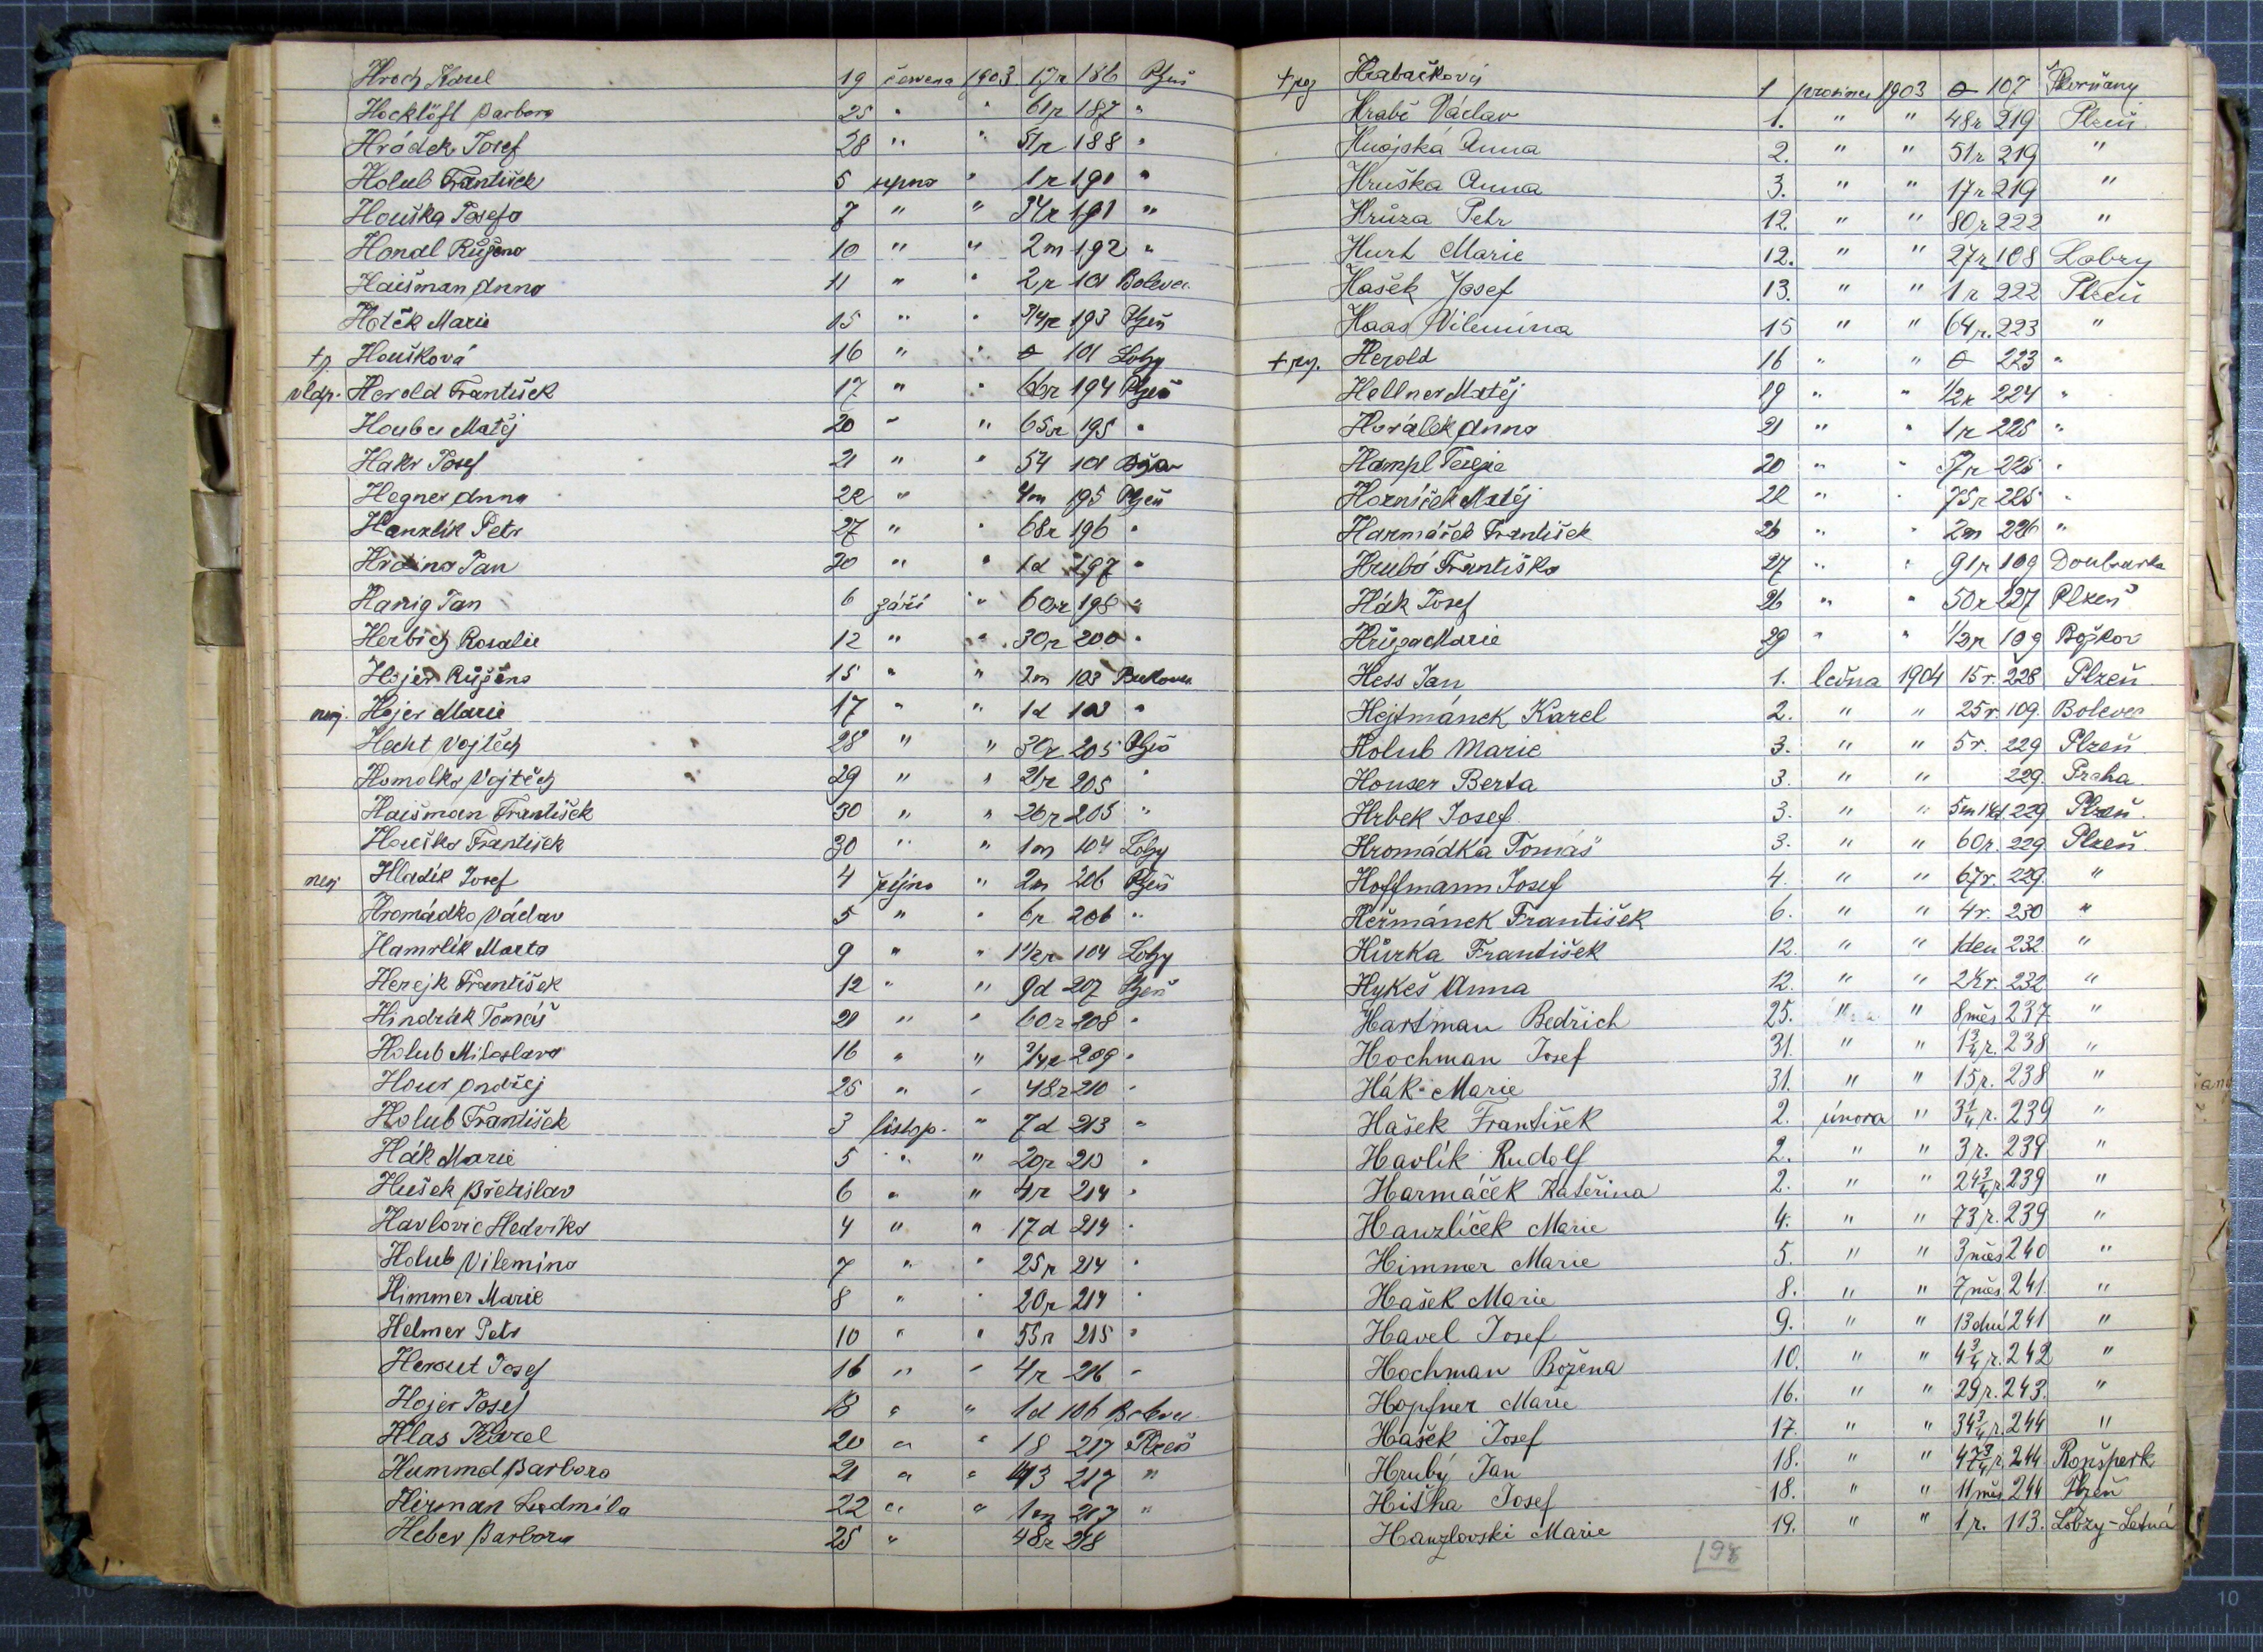 Hroch Karel 19 července 1903 17r 186 Plzeň
Hocklöfl Barbora 25 " " 61r 187 "
Hrádek Josef 28 " " 51r 188 "
Holub František 5 srpna " 1r 190 "
Houška Josefa 7 " " 34r 191 "
Hondl Růžena 10 " " 2m 192 "
Haišman Anna 11 " " 2r 101 Bolevec
Hoték Marie 15 " " 34r 193 Plzeň
Houšková 16 " " 0 101 Lobzy
Herold František 17 " " 66r 194 Plzeň
Houba Matěj 20 " " 65r 195 "
Hakr Josef 21 " " 54 101
Hegner Anna 22 " " 4m 195 Plzeň
Hanzlík Petr 27 " " 68r 196 "
Hrdina Jan 20 " " 1d 197 "
Hanig Jan 6 září " 60r 198 "
Herbich Rosalie 12 " " 30r 200 "
Hojer Růžena 15 " " 2m 103 Bukovec
nej. Hojer Marie 17 " " 1d 103 "
Hecht Vojtěch 28 " " 30r 205 Plzeň
Homolka Vojtěch 29 " " 21r 205 "
Haišman František 30 " " 26r 205 "
Houška František 30 " " 1m 104 Lobzy
nej Hladík Josef 4 října " 2m 206 Plzeň
Hromádko Václav 5 " " 6r 206 "
Hamrlík Marta 9 " " 1½r 104 Lobzy
Herejk František 12 " " 9d 207 Plzeň
Hindrák Tomáš 21 " " 60r 208 "
Holub Miloslava 16 " " ¾r 209 "
Hour Ondřej 25 " " 48r 210 "
Holub František 3 listop. " 7d 213 "
Hák Marie 5 " " 20r 213 "
Hušek Břetislav 6 " " 4r 214 "
Havlovic Hedvika 4 " " 17d 214 "
Holub Vilemína 7 " " 25r 214 "
Himmer Marie 8 " " 20r 214 "
Helmer Petr 10 " " 55r 215 "
Heraut Josef 16 " " 4r 216 "
Hojer Josef 18 " " 1d 106 Bolevec
Hlas Karel 20 " " 18 217 Plzeň
Hummel Barbora 21 " " 43 217 "
Hirman Ludmila 22 " " 1m 217 "
Heber Barbora 25 " 48r 218
Hrabačková 1 prosince 1903 0 107 Skvrňany
Hrabě Václav 1. " " 48r 219 Plzeň
Hnojská Anna 2. " " 51r 219 "
Hruška Anna 3. " " 17r 219 "
Hrůza Petr 12 " " 80r 222 "
Hurt Marie 12. " " 27r 108 Lobzy
Hašek Josef 13. " " 1r 222 Plzeň
Haas Vilemína 15 " " 64r. 223 "
Herold 16 " " 0 223 "
Hellner Matěj 19 " " ½r 224 "
Horálek Anna 21 " " 1r 225 "
Hampl Terezie 20 " " 57r 225 "
Horníček Matěj 22 " " 75r 225 "
Harmáček František 26 " " 2m 226 "
Hrubá Františka 27 " " 91r 109 Doubravka
Hák Josef 26 " " 50r 227 Plzeň
Hřiza Marie 29 " " ½r 109 Božkov
Hess Jan 1. ledna 1904 15r. 228 Plzeň
Hejtmánek Karel 2. " " 25r. 109. Bolevec
Holub Marie 3. " " 5r. 229 Plzeň.
Houser Berta 3. " " 229. Praha.
Hrbek Josef 3. " " 5m 14d 229 Plzeň.
Hromádka Tomáš 3. " " 60r. 229 Plzeň.
Hoffmann Josef 4. " " 67r. 229. "
Heřmánek František 6. " " 4r. 230 "
Hůrka František 12. " " 1den 232. "
Hykeš Anna 12. " " 2½r. 232 "
Hartman Bedřich 25. " " 8měs 237 "
Hochman Josef 31. " " 1¾r. 238 "
Hák Marie 31. " " 15r. 238 "
Hašek František 2. února " 3¼r. 239 "
Havlík Rudolf 2. " " 3r. 239 "
Harmáček Kateřina 2. " " 24¾r 239 "
Hanzlíček Marie 4. " " 73r. 239 "
Himmer Marie 5. " " 3měs 240 "
Hašek Marie 8. " " 7měs 241. "
Havel Josef 9. " " 13dnů 241 "
Hochman Božena 10. " " 4¾r. 242 "
Hopfner Marie 16. " " 29r. 243. "
Hašek Josef 17. " " 34¾r 244 "
Hrubý Jan 18. " " 47¾r. 244 Ronšperk
Hiška Josef 18. " " 11měs 244 Plzeň
Hanzlovski Marie 19. " " 1r. 113. Lobzy-Letná
198